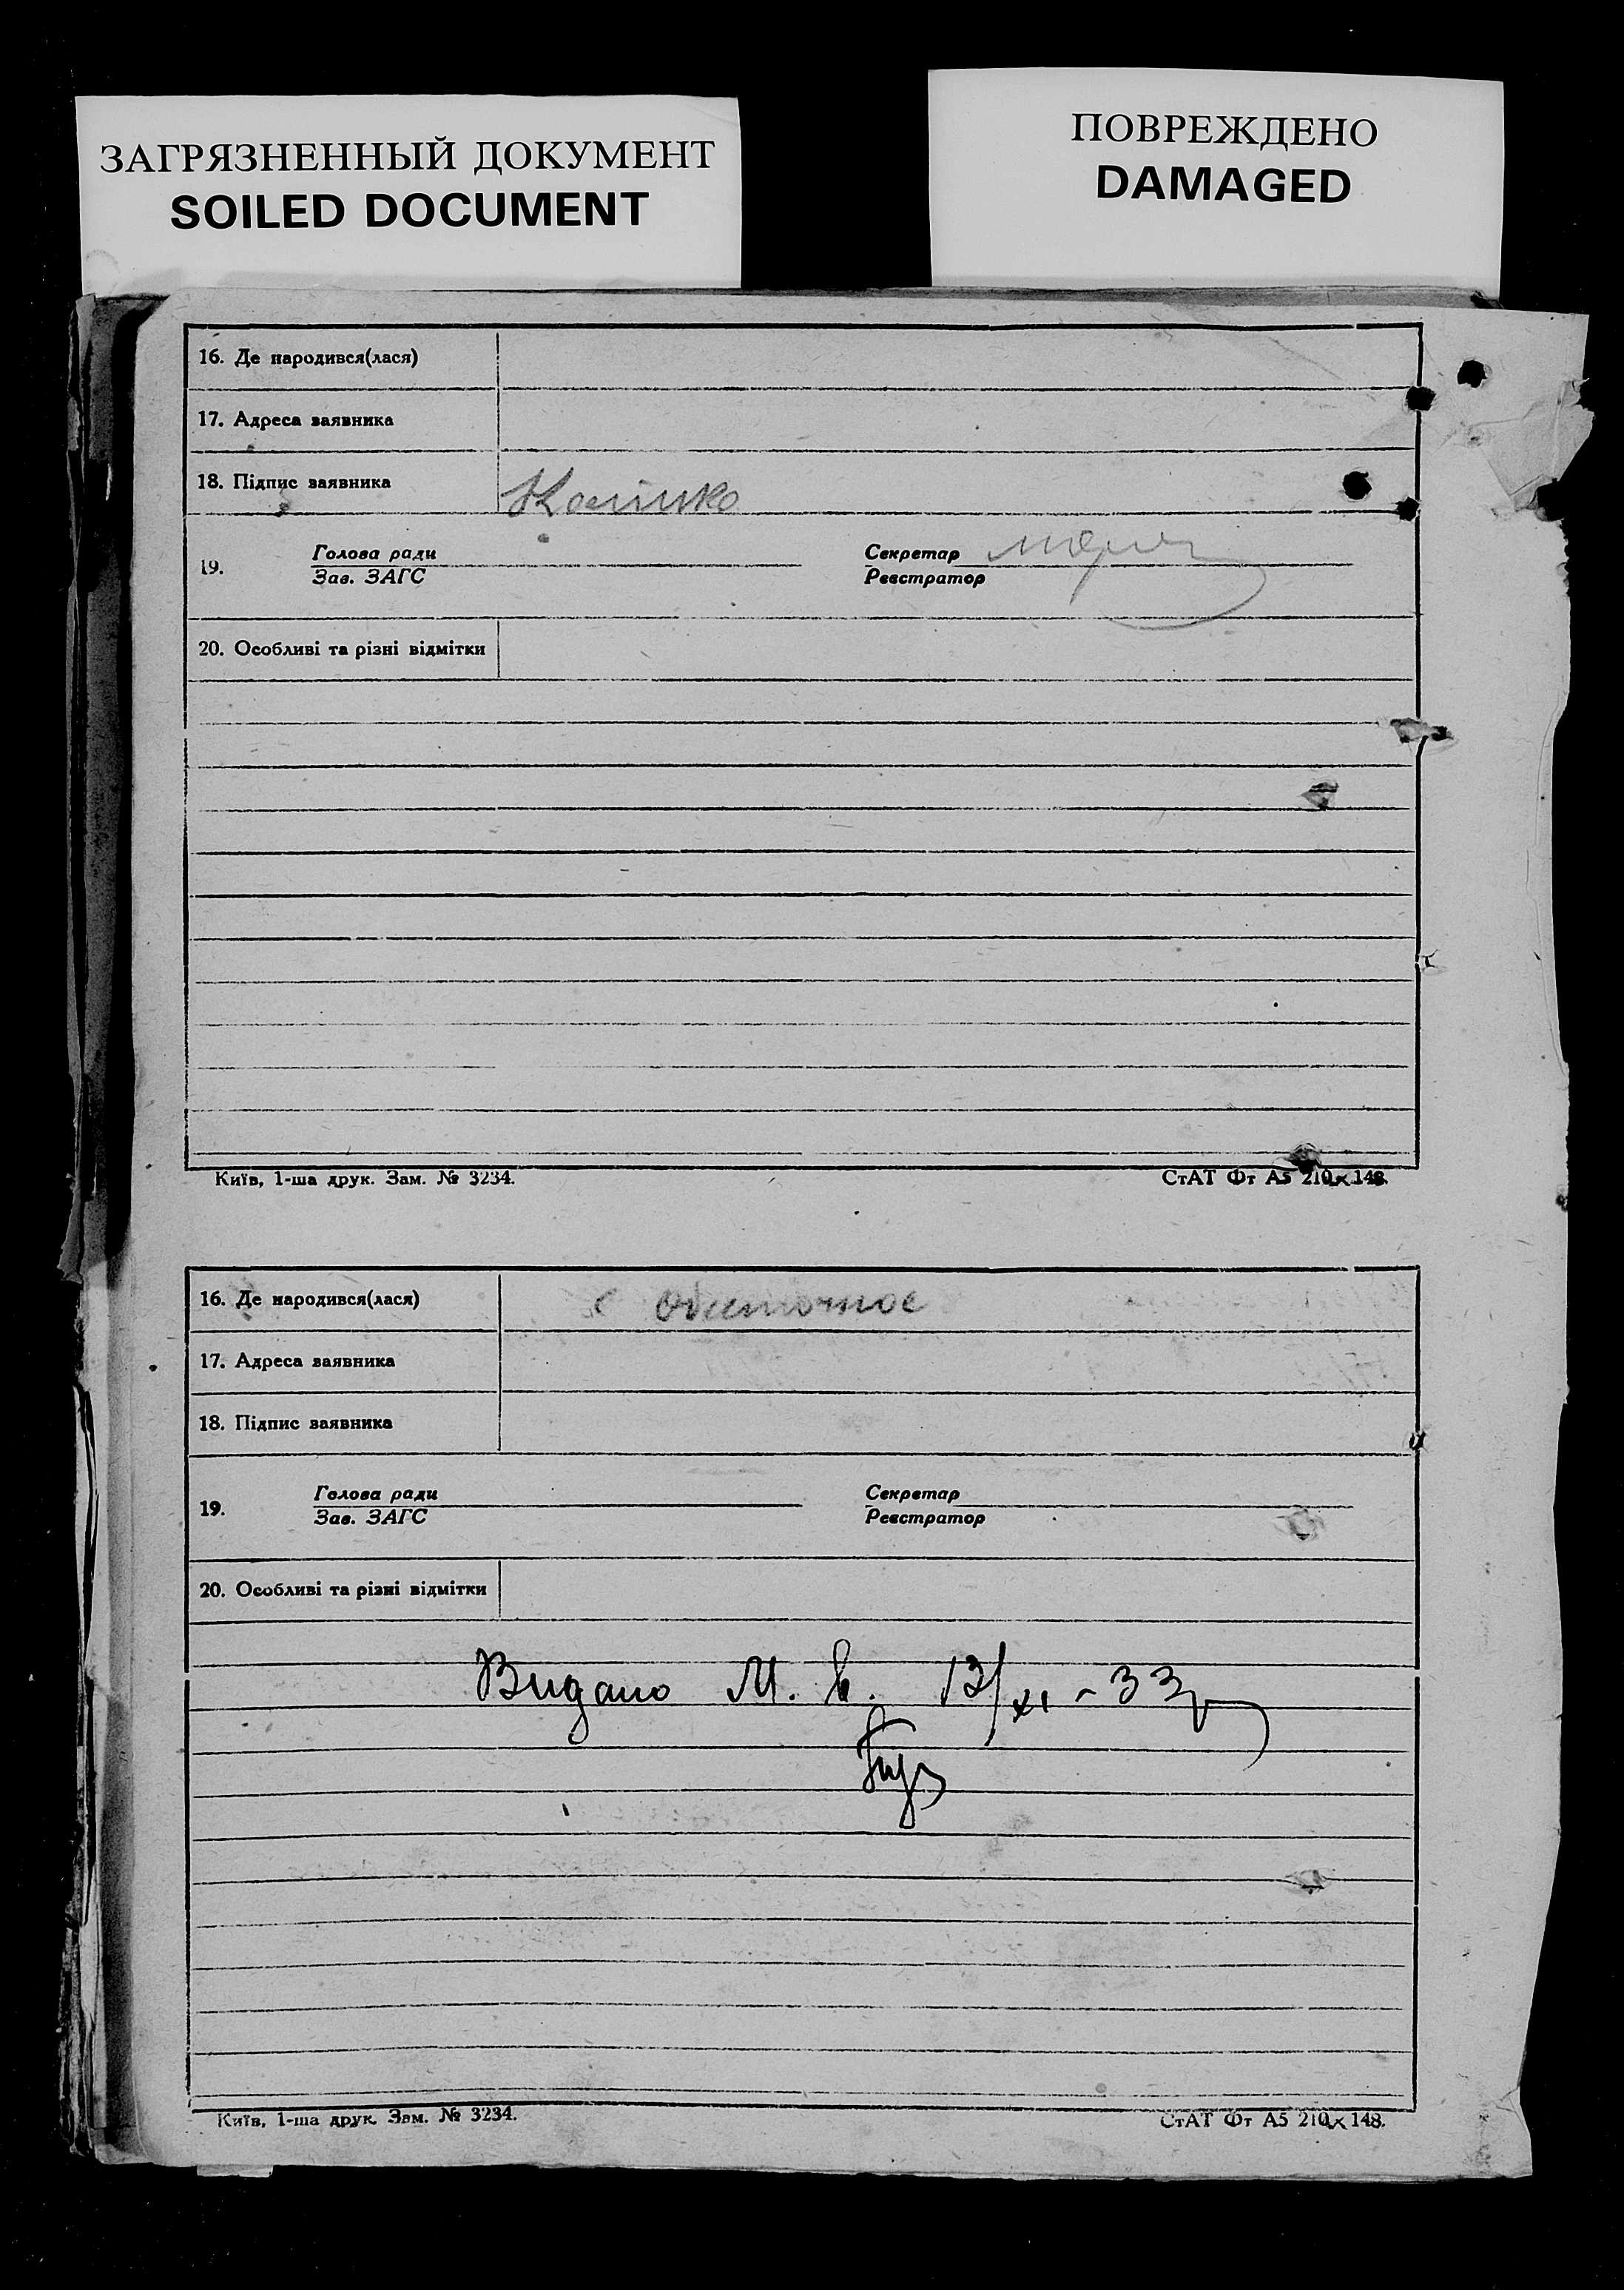 ЗАГРЯЗНЕННЫЙ ДОКУМЕНТ
SOILED DOCUMENT
ПОВРЕЖДЕНО
DAMAGED
16. Де народився(лася)
17. Адреса заявника
18. Підпис заявника
19. Голова ради Секретар
Зав. ЗАГС Реєстратор
20. Особливі та різні відмітки
Київ, 1-ша друк. Зам. № 3234. СтАТ Фт А5 210×148.
16. Де народився(лася) с
17. Адреса заявника
18. Підпис заявника
19. Голова ради Секретар
Зав. ЗАГС Реєстратор
20. Особливі та різні відмітки
Видано М. в. 13/XI - 33р
Київ, 1-ша друк. Зам. № 3234. СтАТ Фт А5 210×148.